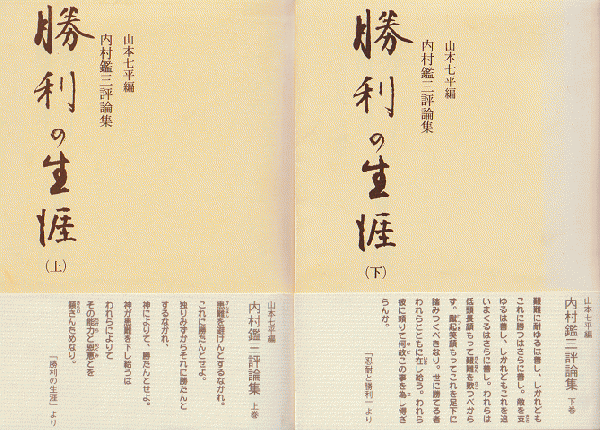 山本七平編
内村鑑三評論集
勝利の生涯
（上）
山本七平編
内村鑑三評論集 上巻
患難を避けんとするなかれ。
これに勝たんとせよ。
独りみずからそれに勝たんと
するなかれ。
神によりて、勝たんとせよ。
神が患難を下し給うは
われらによりて
その能力と恩恵とを
顕さんためなり。
「勝利の生涯」より
山本七平編
内村鑑三評論集
勝利の生涯
（下）
山本七平編
内村鑑三評論集 下巻
艱難に耐ゆるは善し、しかれども
これに勝つはさらに善し。敵を
ゆるは善し、しかれどもこれを
いまくるはさらに善し。われらは
低頭長嘆もって艱難を歎つべから
ず、蹴起奮闘もってこれを足下に
踏みつくべきなり。世に勝てる者
われらとともに在し給う。われら
彼に頼りて何故この事を為し得ざ
らんや。
「忍耐と勝利」より